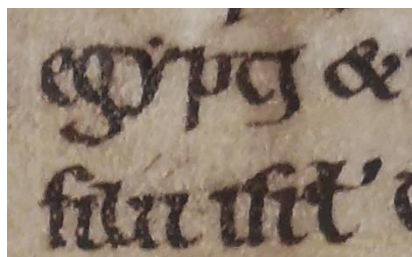 egẏptị &
filii isrł’